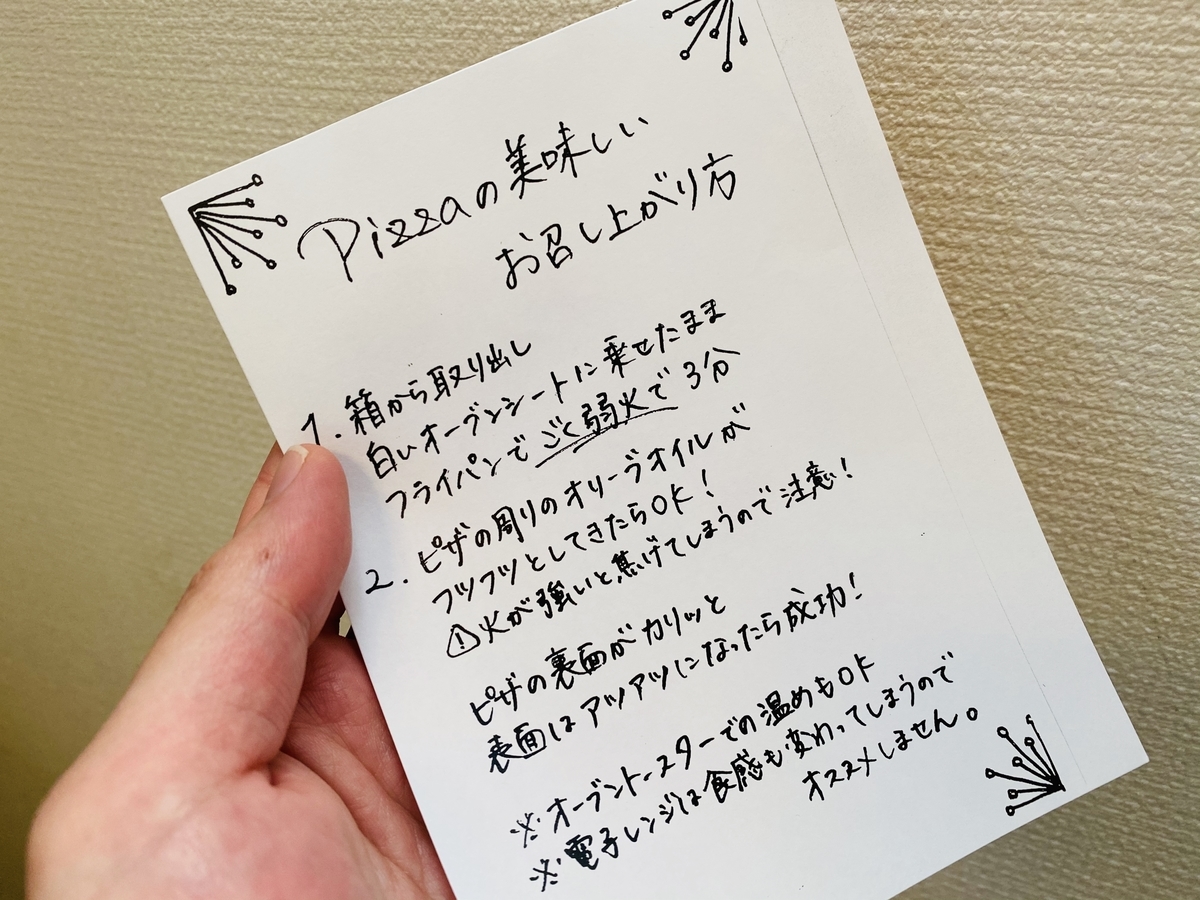 Pizzaの美味しい
お召し上がり方
1. 箱から取り出し
白いオーブンシートに乗せたまま
フライパンでごく弱火で3分
2. ピザの周りのオリーブオイルが
フツフツとしてきたらOK!
⚠火が強いと焦げてしまうので注意!
ピザの裏面がカリッと
表面はアツアツになったら成功!
※オーブントースターでの温めもOK
※電子レンジは食感も変わってしまうので
オススメしません。